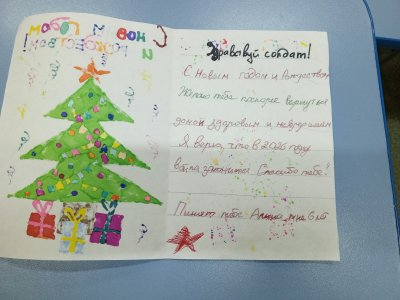 с Новым Годом
и Рождеством!
Здравствуй солдат!
С Новым годом и Рождеством
Желаю тебе поскорее вернуться
домой здоровым и невредимым
Я верю, что в 2026 году
война закончится. Спасибо тебе!
Пишет тебе мне 6 лет